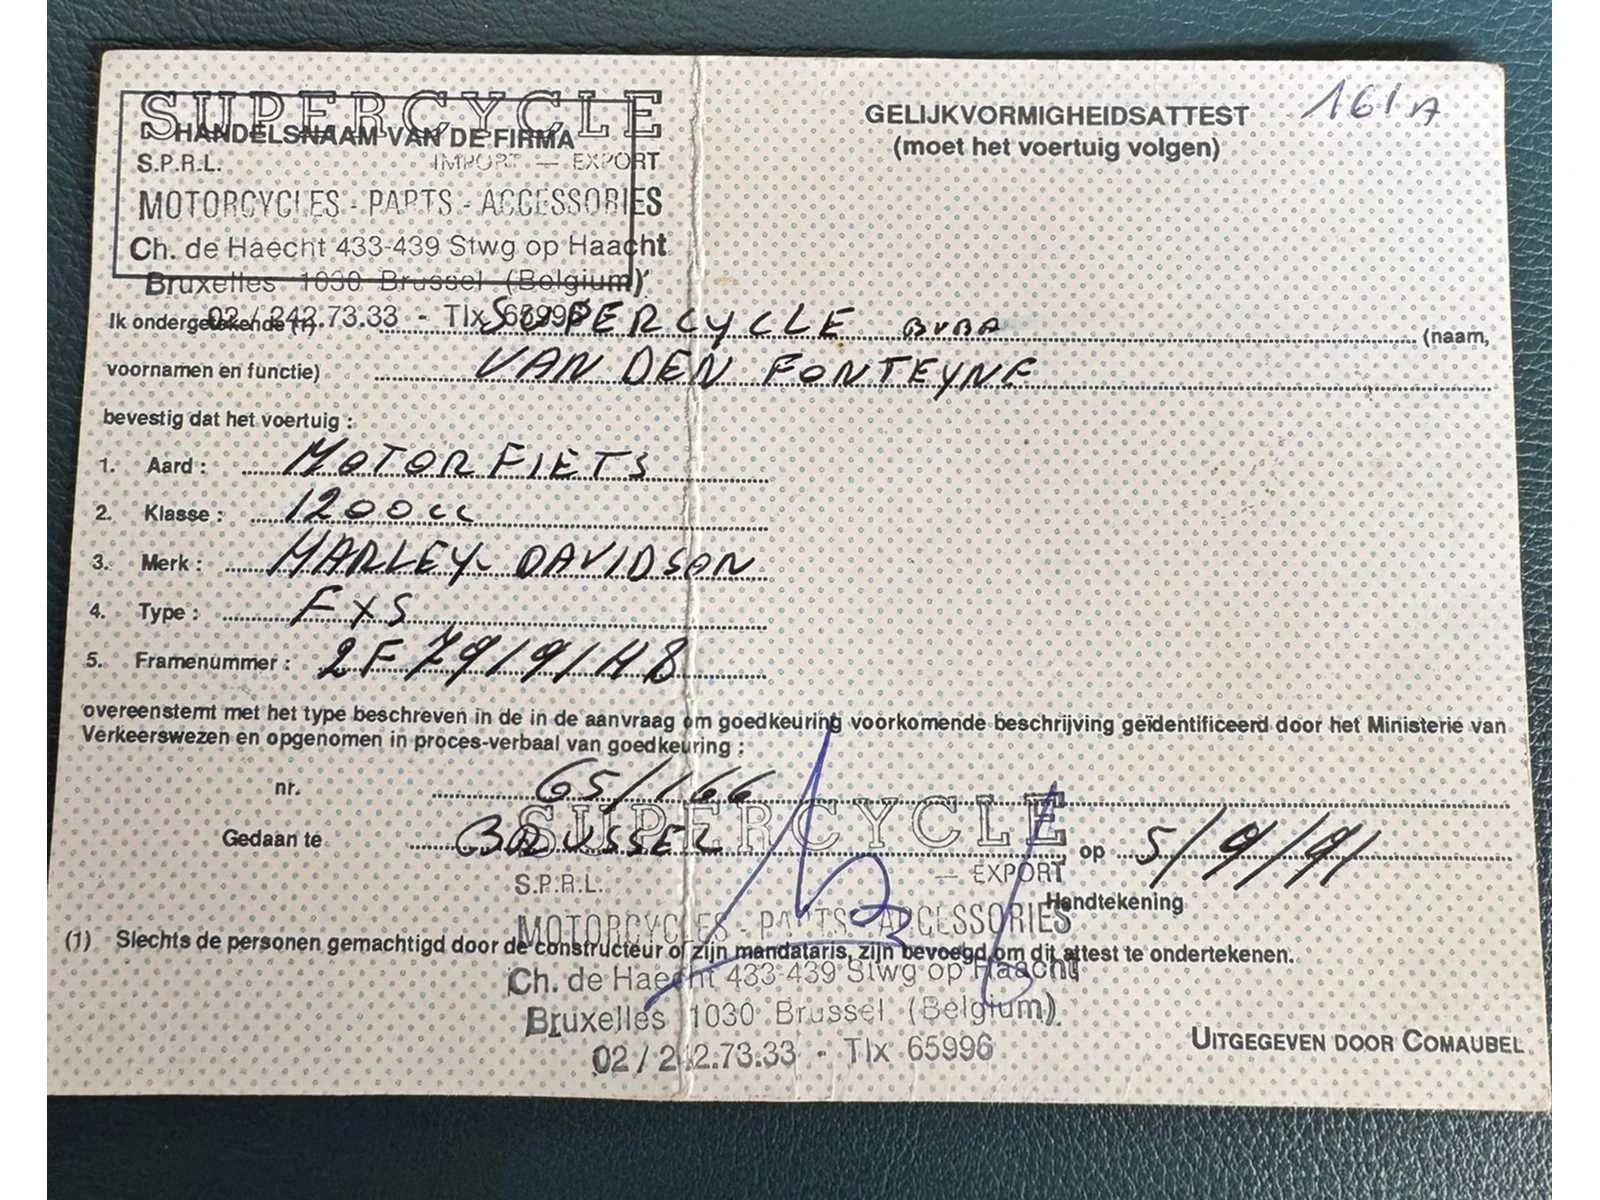 SUPERCYCLE
HANDELSNAAM VAN DE FIRMA
S.P.R.L. IMPORT — EXPORT
MOTORCYCLES - PARTS - ACCESSORIES
Ch. de Haecht 433-439 Stwg op Haacht
Bruxelles 1030 Brussel (Belgium)
02 / 242.73.33 - Tlx 65996
GELIJKVORMIGHEIDSATTEST
(moet het voertuig volgen)
161 A
Ik ondergetekende (1) SUPERCYCLE BVBA (naam,
voornamen en functie) VAN DEN FONTEYNE
bevestig dat het voertuig :
1. Aard : MOTORFIETS
2. Klasse : 1200cc
3. Merk : HARLEY-DAVIDSON
4. Type : FXS
5. Framenummer : 2F79191H8
overeenstemt met het type beschreven in de in de aanvraag om goedkeuring voorkomende beschrijving geïdentificeerd door het Ministerie van
Verkeerswezen en opgenomen in proces-verbaal van goedkeuring :
nr. 65/166
Gedaan te BRUSSEL op 5/9/91
Handtekening
SUPERCYCLE
S.P.R.L. — EXPORT
MOTORCYCLES - PARTS - ACCESSORIES
(1) Slechts de personen gemachtigd door de constructeur of zijn mandataris, zijn bevoegd om dit attest te ondertekenen.
Ch. de Haecht 433-439 Stwg op Haacht
Bruxelles 1030 Brussel (Belgium)
02 / 242.73.33 - Tlx 65996
UITGEGEVEN DOOR COMAUBEL